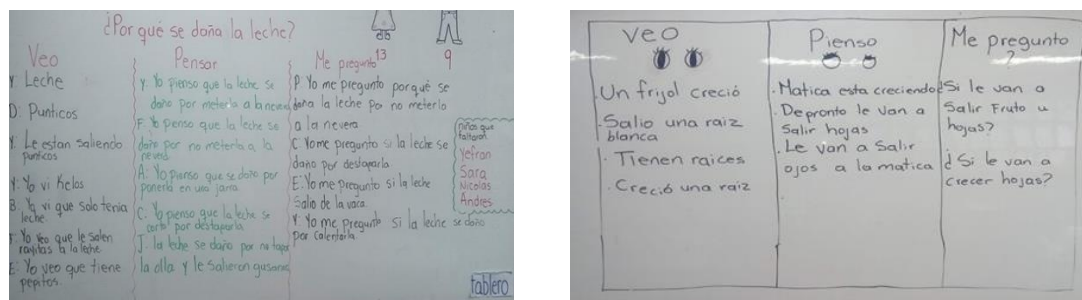 ¿Por qué se daña la leche?
Veo
Y: Leche
D: Punticos
Y: Le estan saliendo
punticos
Y: Yo vi hielos
B: Yo vi que solo tenia
leche.
F: Yo veo que le salen
rayitas a la leche
E: Yo veo que tiene
pepitos.
Pensar
Y: Yo pienso que la leche se
daño por meterla a la nevera
F: Yo pienso que la leche se
daño por no meterla a la
nevera
A: Yo pienso que se daño por
ponerla en una jarra
C: Yo pienso que la leche se
corto por destaparla
J: la leche se daño por no tapar
la olla y le salieron gusanos
Me pregunto
P: Yo me pregunto porqué se
daña la leche por no meterlo
a la nevera
C: Yo me pregunto si la leche se
daño por destaparla.
E: Yo me pregunto si la leche
salio de la vaca.
Y: Yo me pregunto si la leche se daño
por calentarla.
13
9
niños que
faltaron
Yefran
Sara
Nicolas
Andres
tablero
Veo
Un frijol creció
Salio una raiz
blanca
Tienen raices
Creció una raiz
Pienso
Matica esta creciendo
De pronto le van a
salir hojas
Le van a salir
ojos a la matica
Me pregunto
?
¿Si le van a
salir fruto u
hojas?
¿Si le van a
crecer hojas?